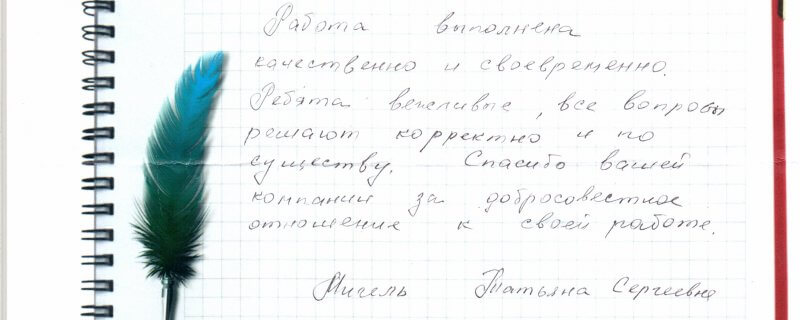 Работа выполнена
качественно и своевременно.
Ребята вежливые, все вопросы
решают корректно и по
существу. Спасибо вашей
компании за добросовестное
отношение к своей работе.
Мигель Татьяна Сергеевна